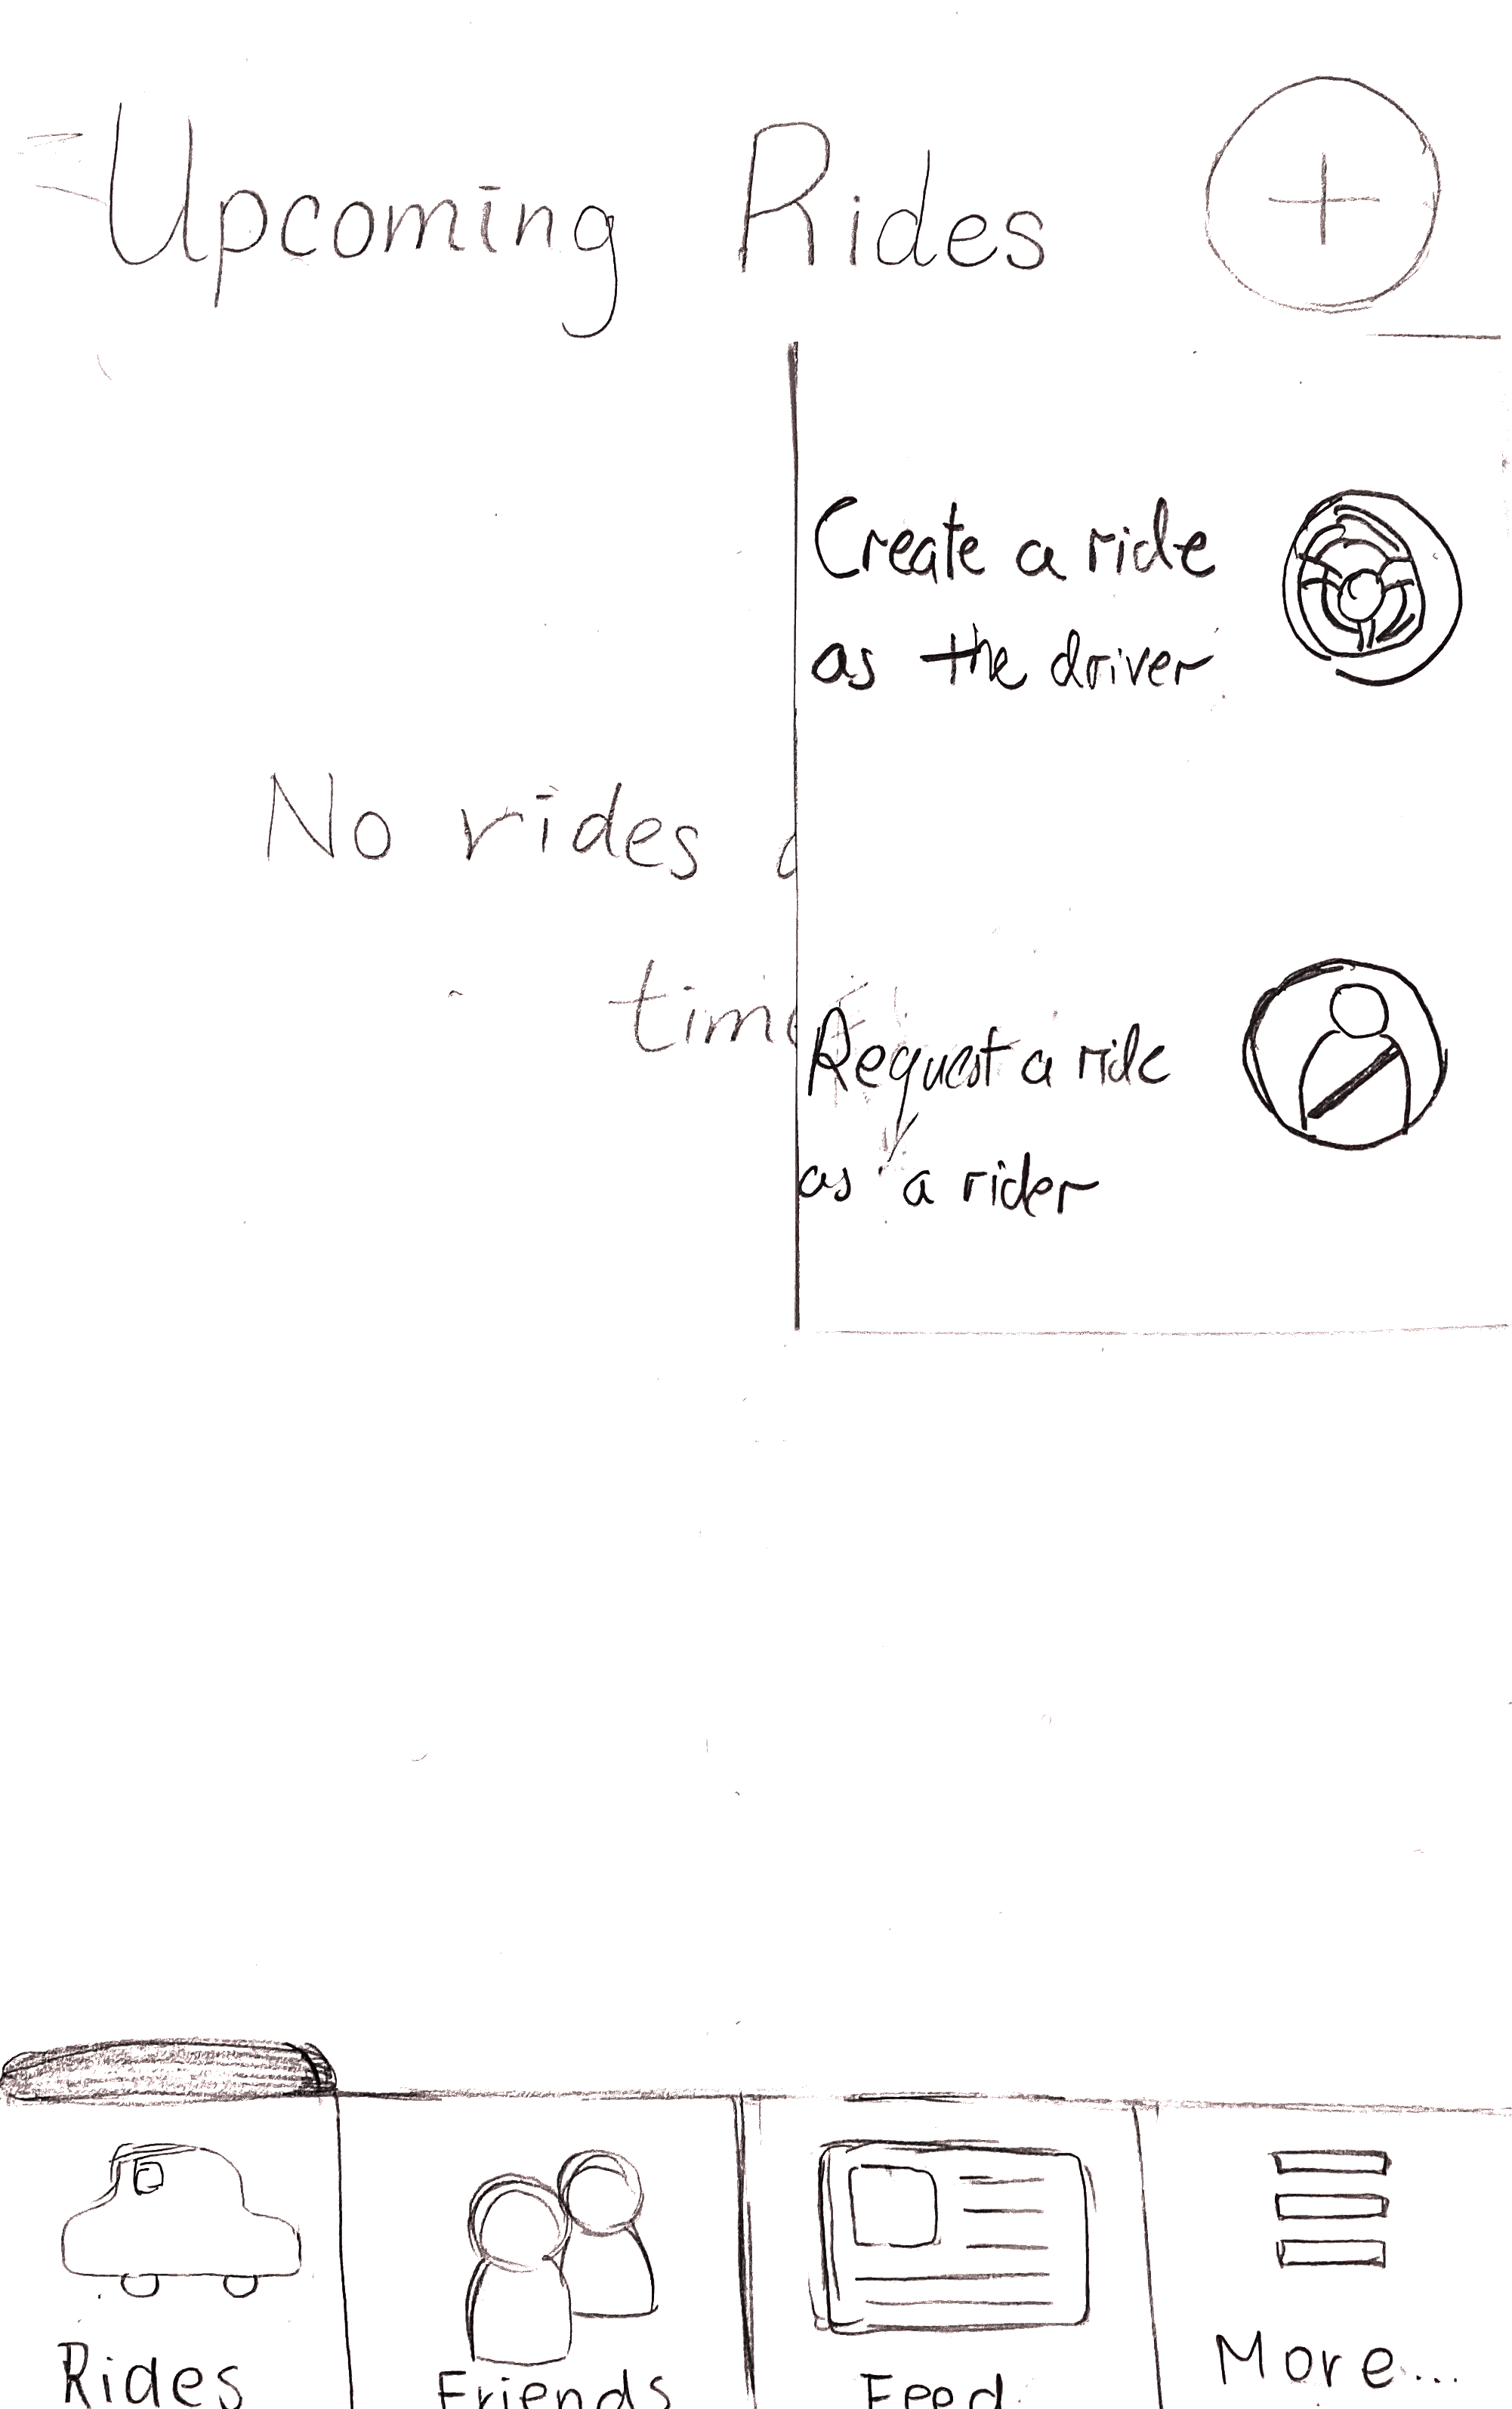 Upcoming Rides +
Create a ride
as the driver
No rides
Request a ride
as a rider
Rides
Friends
Feed
More...